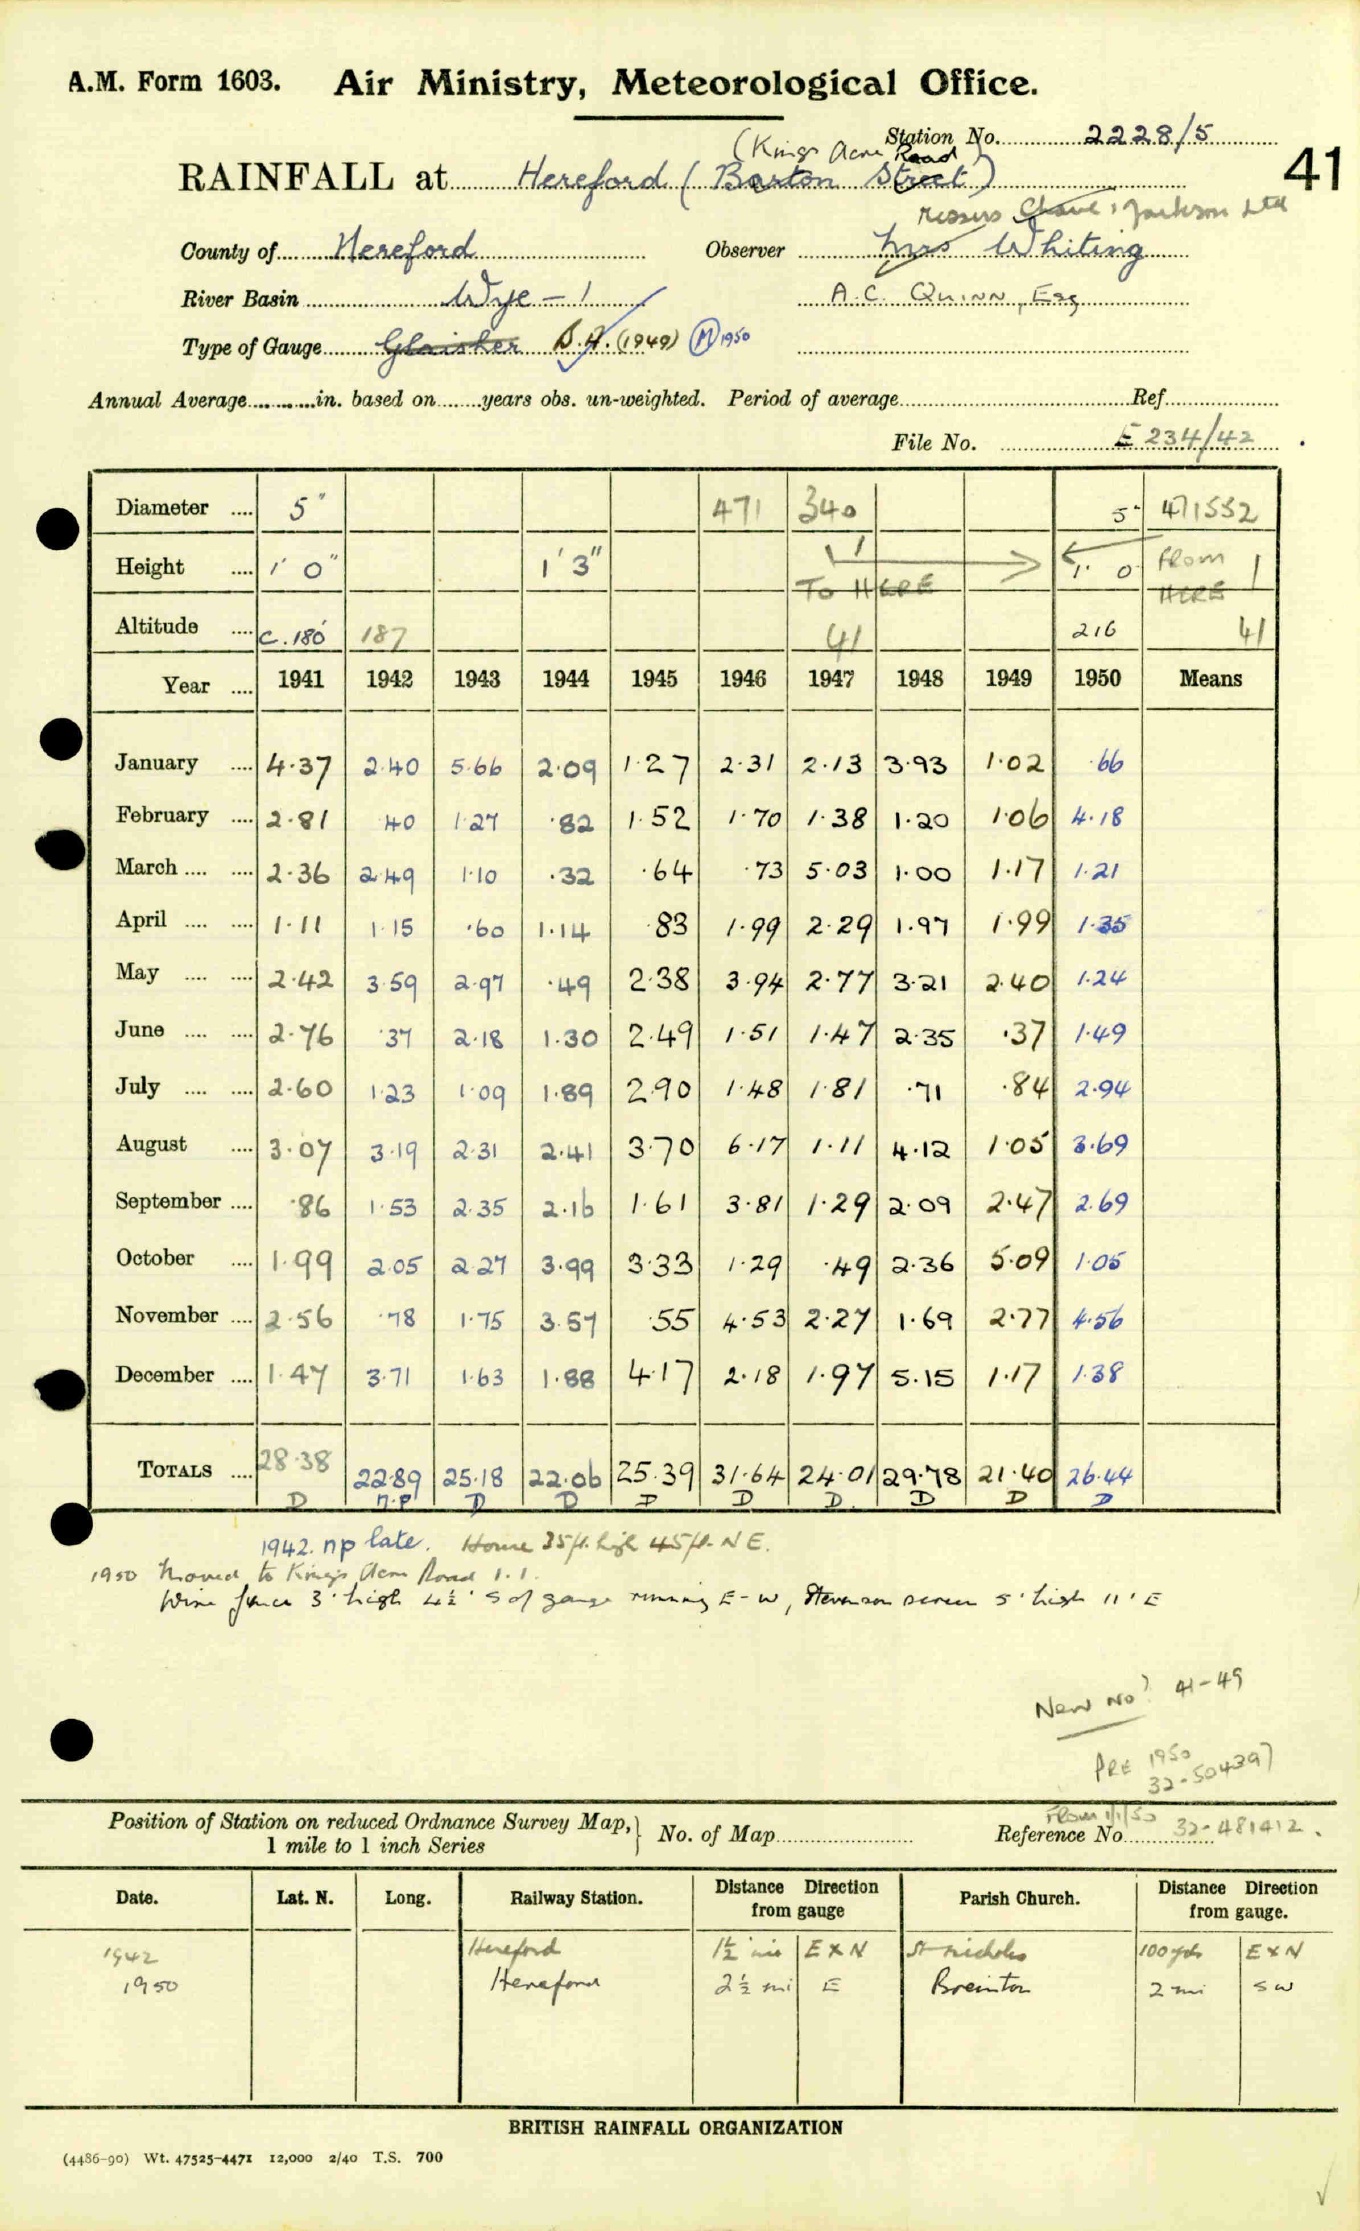 A.M. Form 1603. Air Ministry, Meteorological Office.
Station No. 2228/5
(Kings Acre Road)
41
RAINFALL at Hereford (Barton Street)
Messrs Chave & Jackson Ltd
County of Hereford Observer Mrs Whiting
River Basin Wye - 1 A.C. Quinn, Esq
Type of Gauge Glaisher S.A. (1949) M 1950
Annual Average in. based on years obs. un-weighted. Period of average Ref.
File No. E 234/42
Diameter 5" 471 340 5" 471552
Height 1' 0" 1' 3" 1 1' 0" FROM 1
TO HERE HERE
Altitude c.180' 187 41 216 41
Year 1941 1942 1943 1944 1945 1946 1947 1948 1949 1950 Means
January 4.37 2.40 5.66 2.09 1.27 2.31 2.13 3.93 1.02 .66
February 2.81 .40 1.27 .82 1.52 1.70 1.38 1.20 1.06 4.18
March 2.36 2.49 1.10 .32 .64 .73 5.03 1.00 1.17 1.21
April 1.11 1.15 .60 1.14 .83 1.99 2.29 1.97 1.99 1.35
May 2.42 3.59 2.97 .49 2.38 3.94 2.77 3.21 2.40 1.24
June 2.76 .37 2.18 1.30 2.49 1.51 1.47 2.35 .37 1.49
July 2.60 1.23 1.09 1.89 2.90 1.48 1.81 .71 .84 2.94
August 3.07 3.19 2.31 2.41 3.70 6.17 1.11 4.12 1.05 3.69
September .86 1.53 2.35 2.16 1.61 3.81 1.29 2.09 2.47 2.69
October 1.99 2.05 2.27 3.99 3.33 1.29 .49 2.36 5.09 1.05
November 2.56 .78 1.75 3.57 .55 4.53 2.27 1.69 2.77 4.56
December 1.47 3.71 1.63 1.88 4.17 2.18 1.97 5.15 1.17 1.38
TOTALS 28.38 22.89 25.18 22.06 25.39 31.64 24.01 29.78 21.40 26.44
D n.p D D D D D D D D
1942. np late. House 35ft. high 45ft. NE.
1950 Moved to Kings Acre Road 1.1.
Wire fence 3' high 4½' S of gauge running E-W, Stevenson screen 5' high 11' E
New No? 41-49
PRE 1950
32-504397
From 1/1/50
Position of Station on reduced Ordnance Survey Map, 1 mile to 1 inch Series No. of Map Reference No. 32-481412.
Date. Lat. N. Long. Railway Station. Distance from gauge Direction Parish Church. Distance Direction from gauge.
1942 Hereford 1½ mi E x N St Nicholas 100 yds E x N
1950 Hereford 2½ mi E Breinton 2 mi SW
BRITISH RAINFALL ORGANIZATION
(4486-90) Wt. 47525-4471 12,000 2/40 T.S. 700